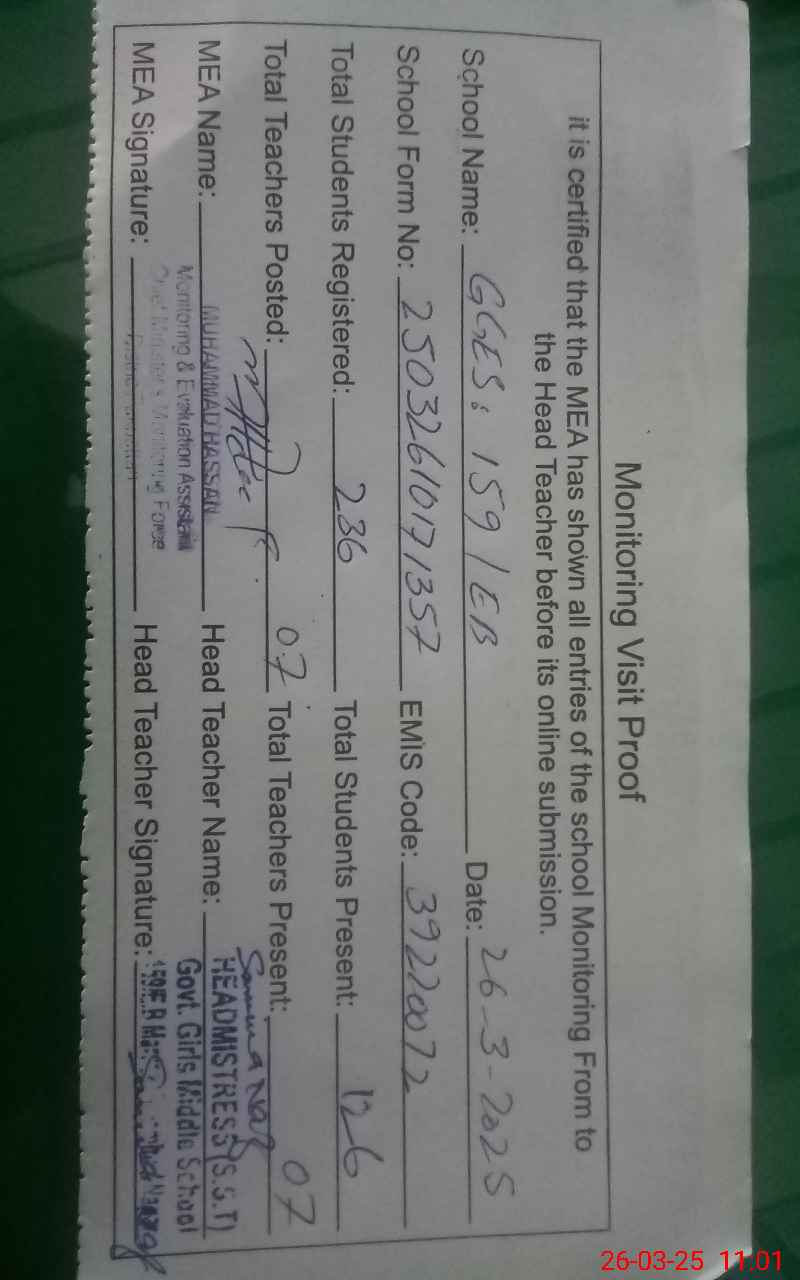 Monitoring Visit Proof
it is certified that the MEA has shown all entries of the school Monitoring From to
the Head Teacher before its online submission.
School Name: GGES: 159/EB Date: 26-3-2025
School Form No: 2503261017 1357 EMIS Code: 39220072
Total Students Registered: 236 Total Students Present: 126
Total Teachers Posted: 07 Total Teachers Present: 07
MEA Name: MUHAMMAD HASSAN Head Teacher Name: HEADMISTRESS (S.S.T)
Monitoring & Evaluation Assistant Govt. Girls Middle School
Chief Minister's Monitoring Force
MEA Signature: Head Teacher Signature:
26-03-25 11:01